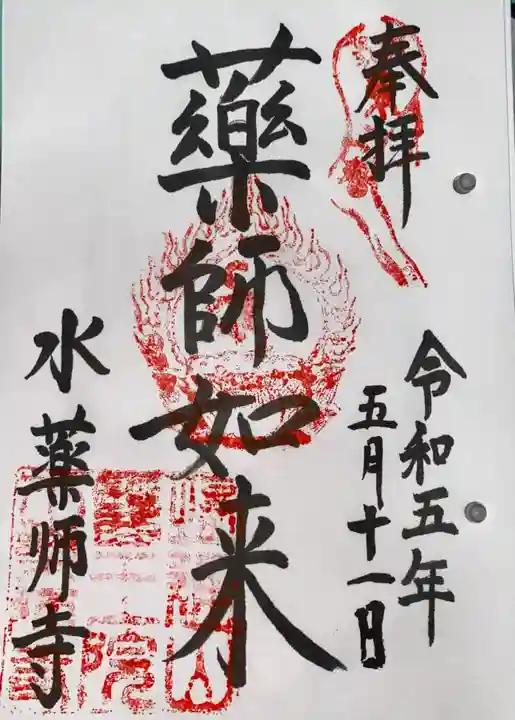 奉拝
令和五年
五月十一日
藥師如来
水薬师寺
院